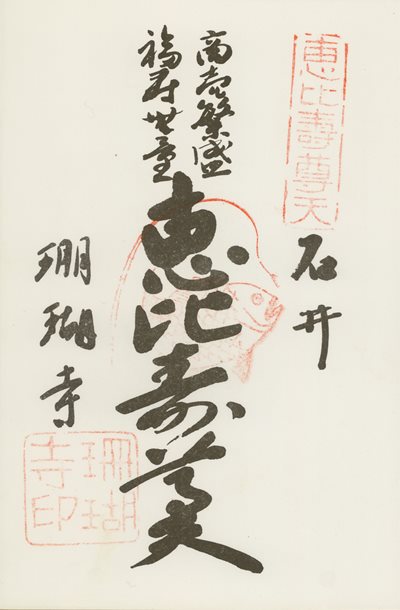 恵比寿尊天
石井
商売繁盛
福寿無量
恵比寿尊天
珊瑚寺
珊瑚寺印